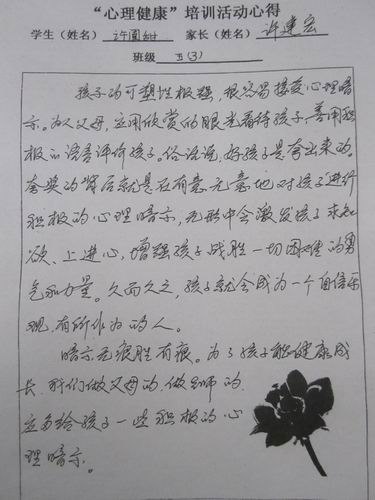 “心理健康”培训活动心得
学生（姓名） 许圆甜 家长（姓名） 许建宏
班级 五(3)
孩子的可塑性极强，很容易接受心理暗
示。为人父母，应用欣赏的眼光看待孩子，善用积
极的语言评价孩子。俗话说，好孩子是夸出来的。
夸奖的背后就是在有意无意地对孩子进行
积极的心理暗示，无形中会激发孩子求知
欲、上进心，增强孩子战胜一切困难的勇
气和力量。久而久之，孩子就会成为一个自信乐
观，有所作为的人。
暗示无痕胜有痕。为了孩子能健康成
长，我们做父母的，做老师的
应多给孩子一些积极的心
理暗示。